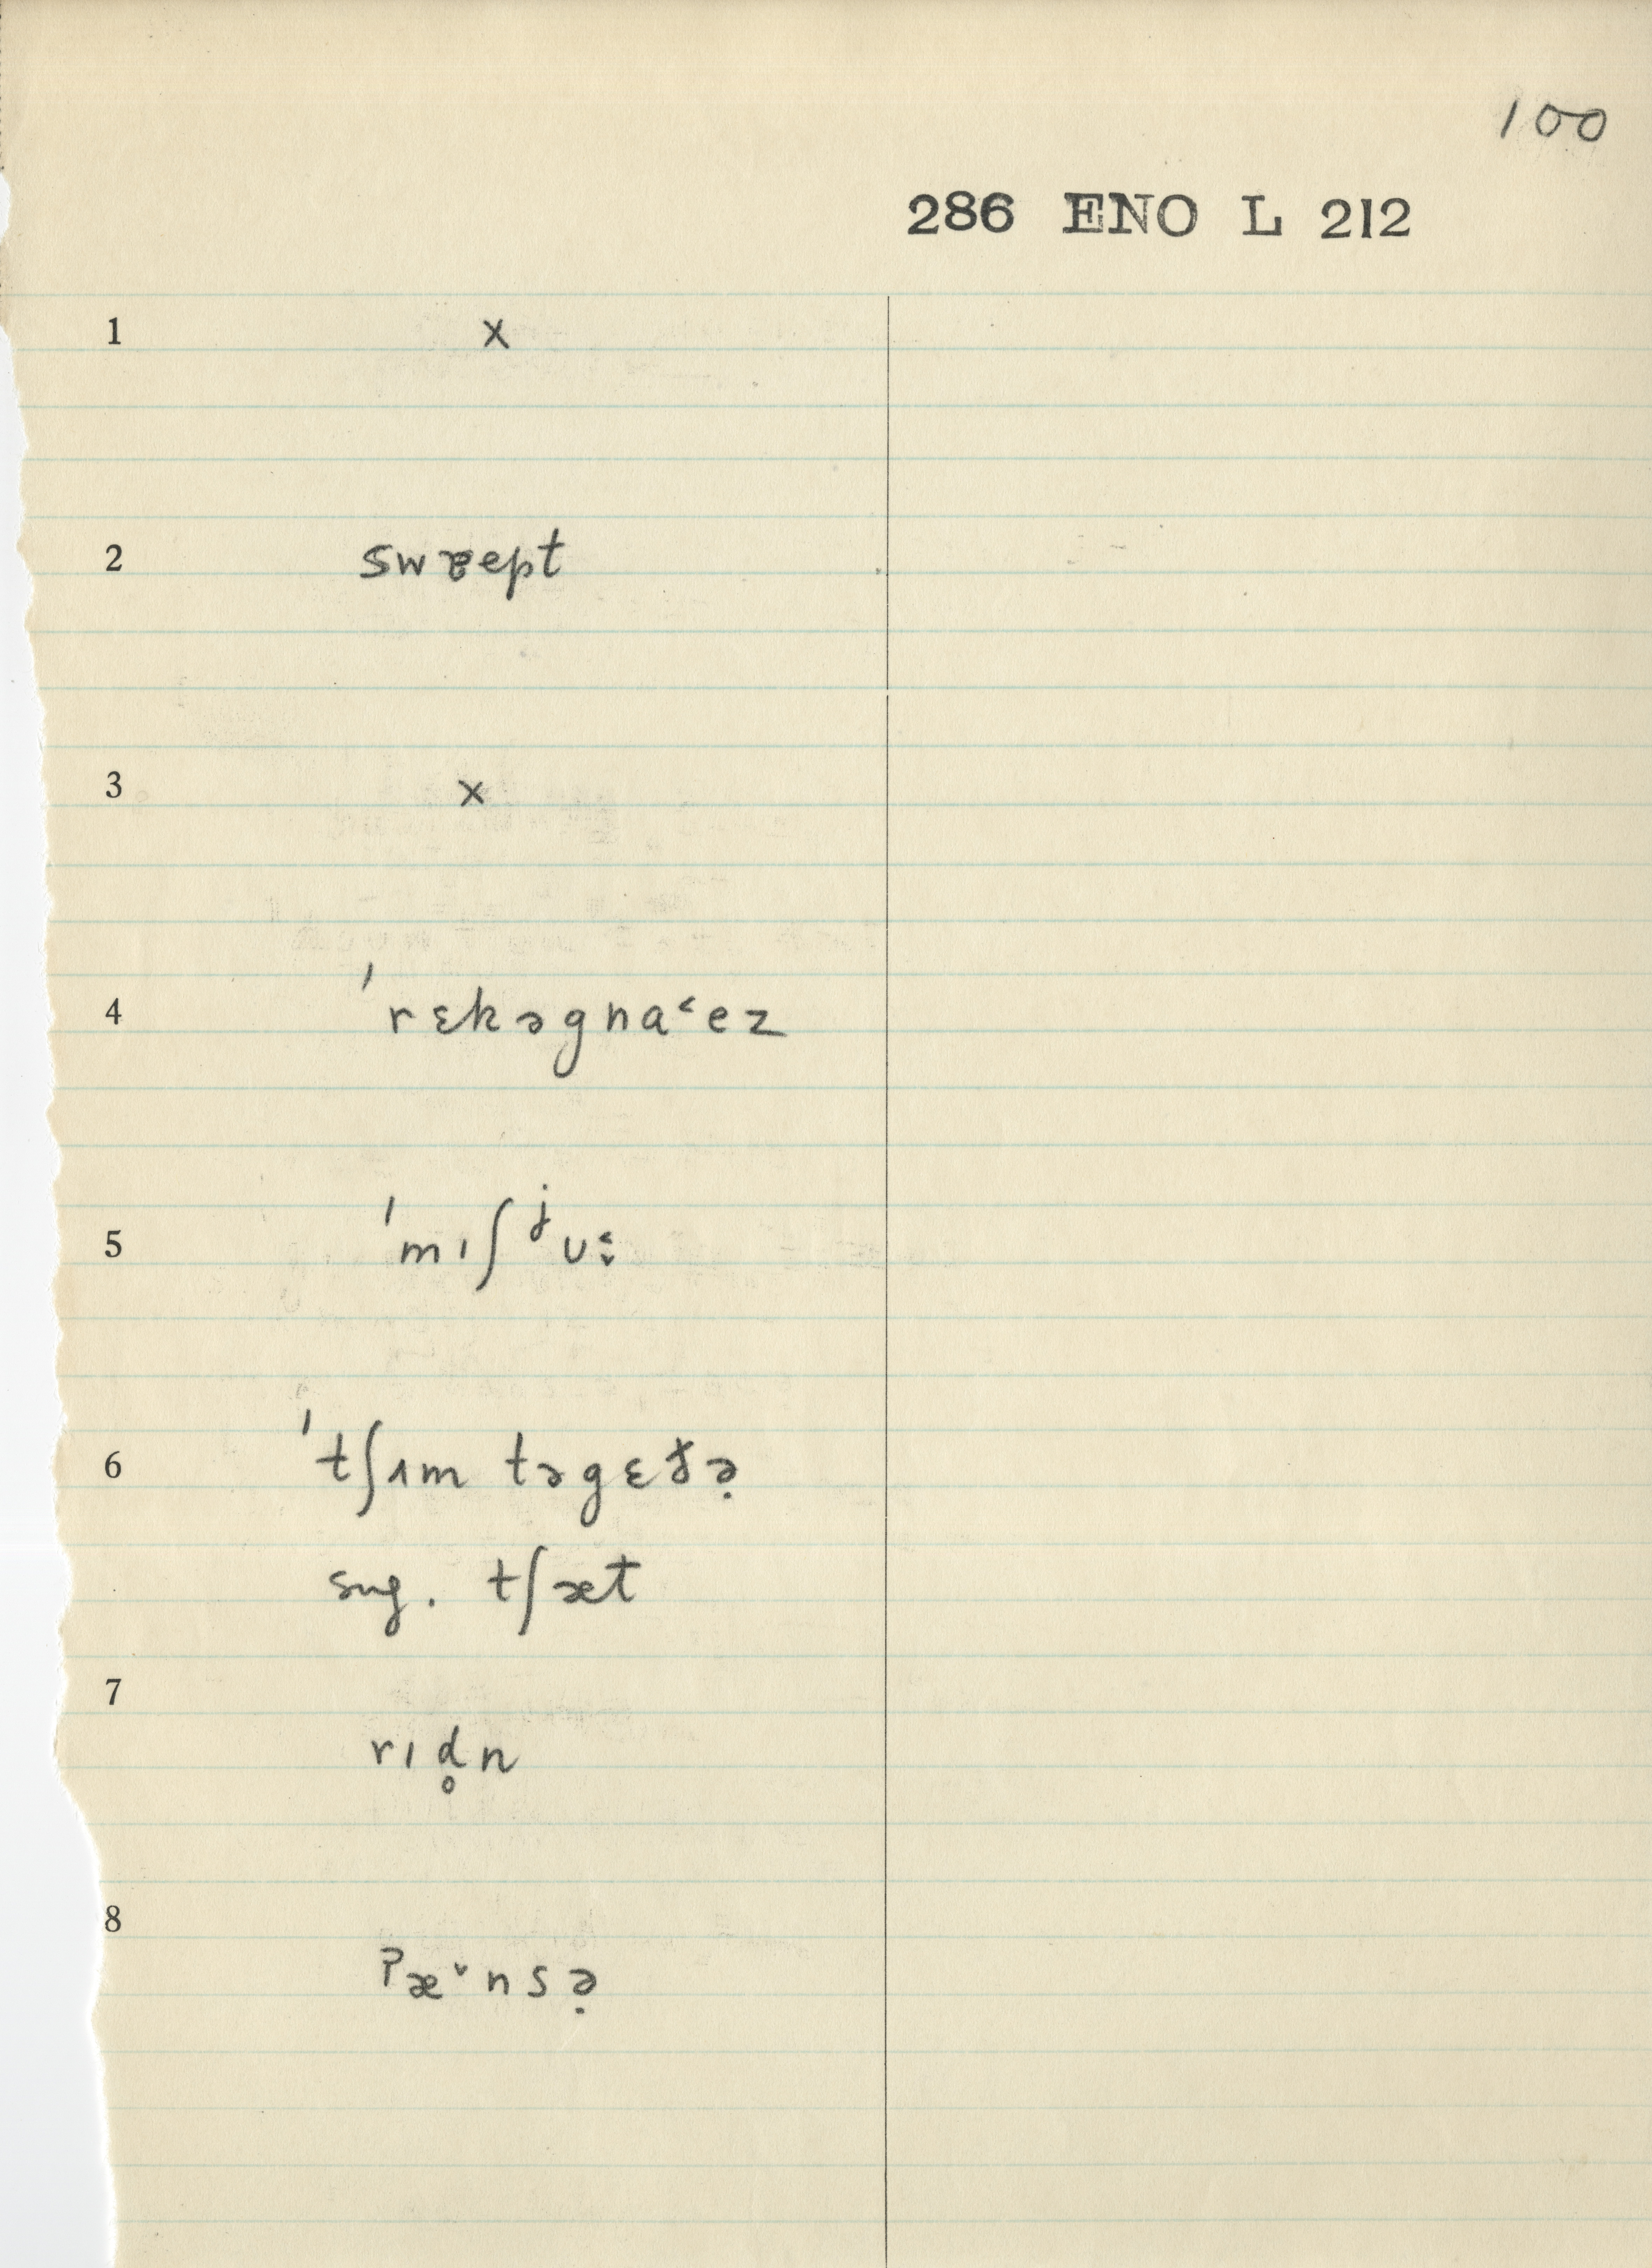 100
286 ENO L 212
1 x
2 swɐept
3 x
4 ˈrɛkəgna˂ez
5 ˈmɪʃʲʊ˂˅
6 ˈtʃʌm təgɛt̬ə̣
sug. tʃæt
7 rɪd̥n
8 ʔæ˅nsə̣